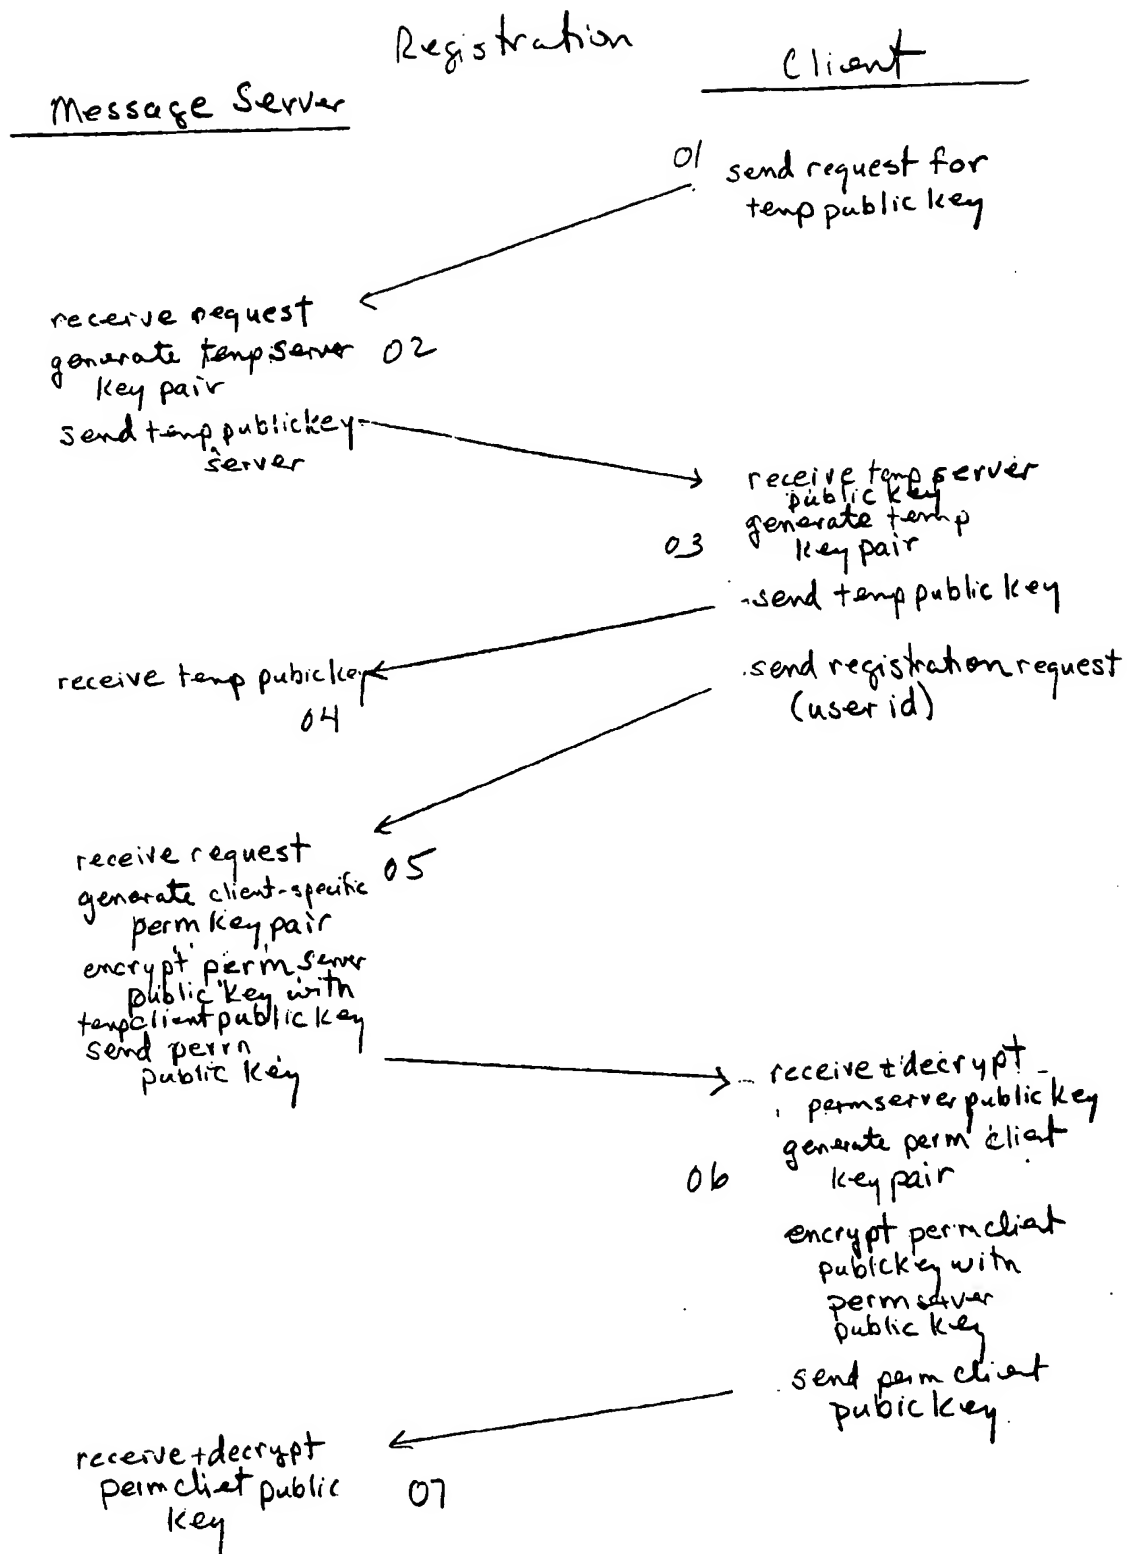 Registration
Client
Message Server
01
send request for
temp public key
receive request
generate temp server
key pair
02
send temp public key
^
server
receive temp server
public key
generate temp
key pair
03
send temp public key
receive temp pubic key
04
send registration request
(user id)
receive request
05
generate client-specific
perm key pair
encrypt perm server
public key with
temp client public key
send perm
public key
receive + decrypt
perm server public key
generate perm client
key pair
06
encrypt perm client
publckey with
perm server
public key
send perm client
pubic key
receive + decrypt
perm cliet public
key
07